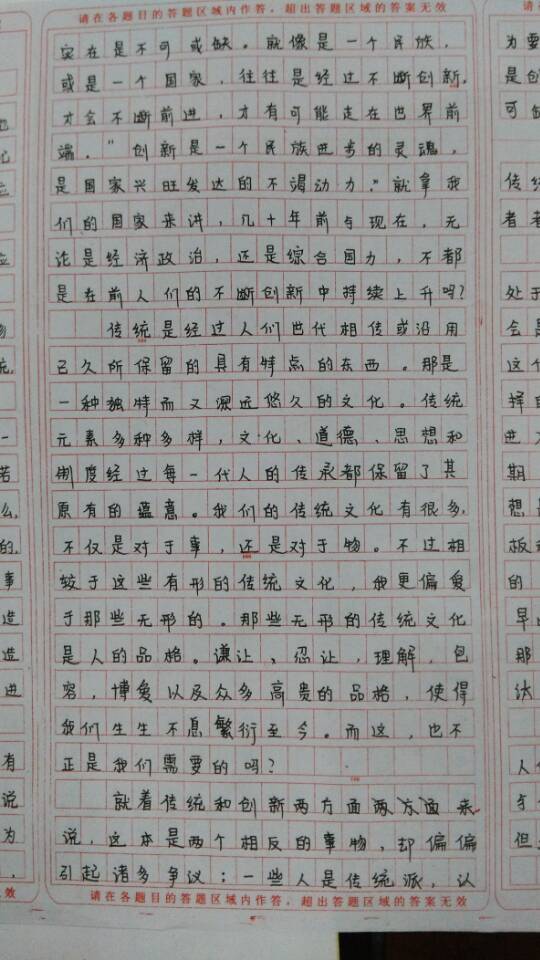 请在各题目的答题区域内作答，超出答题区域的答案无效
实在是不可或缺。就像是一个民族，
或是一个国家，往往是经过不断创新，
才会不断前进，才有可能走在世界前
端。"创新是一个民族进步的灵魂，
是国家兴旺发达的不竭动力。"就拿我
们的国家来讲，几十年前与现在，无
论是经济政治，还是综合国力，不都
是在前人们的不断创新中持续上升吗？
传统是经过人们世代相传或沿用
已久所保留的具有特点的东西。那是
一种独特而又深远悠久的文化。传统
元素多种多样，文化、道德、思想和
制度经过每一代人的传承都保留了其
原有的蕴意。我们的传统文化有很多，
不仅是对于事，还是对于物。不过相
较于这些有形的传统文化，我更偏爱
于那些无形的。那些无形的传统文化
是人的品格。谦让、忍让，理解，包
容，博爱以及众多高贵的品格，使得
我们生生不息繁衍至今。而这，也不
正是我们需要的吗？
就着传统和创新两方面来
说，这本是两个相反的事物，却偏偏
引起诸多争议：一些人是传统派，认
请在各题目的答题区域内作答，超出答题区域的答案无效